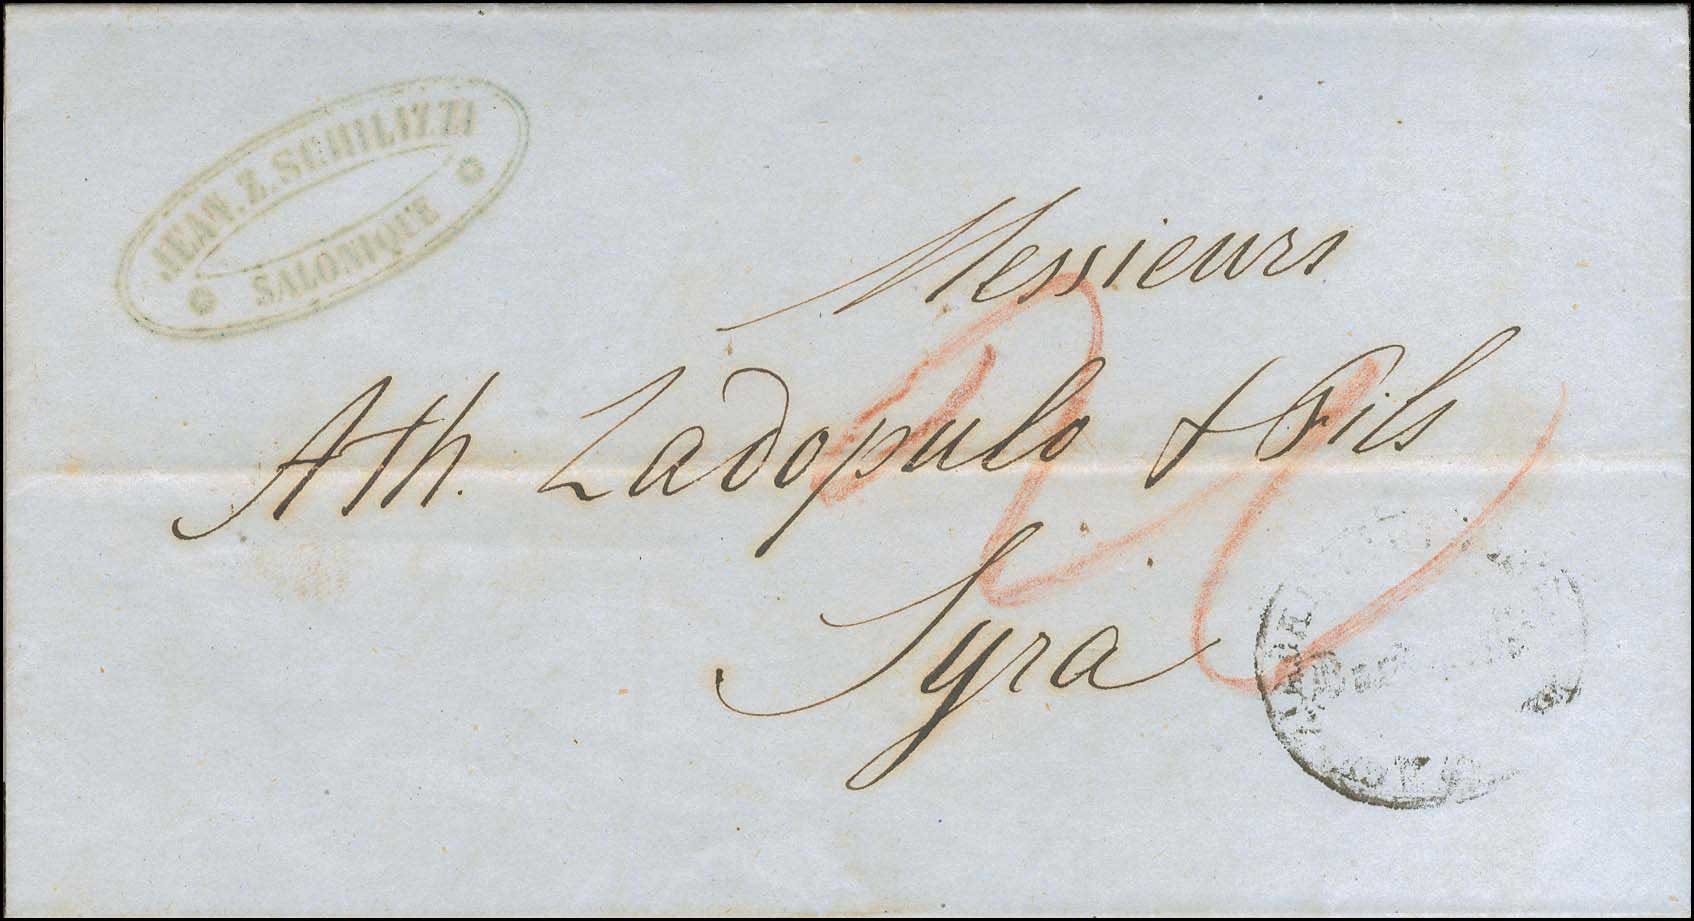 JEAN. Z. SCHILIZZI
SALONIQUE
Messieurs
Ath. Ladopulo & Fils
Syra